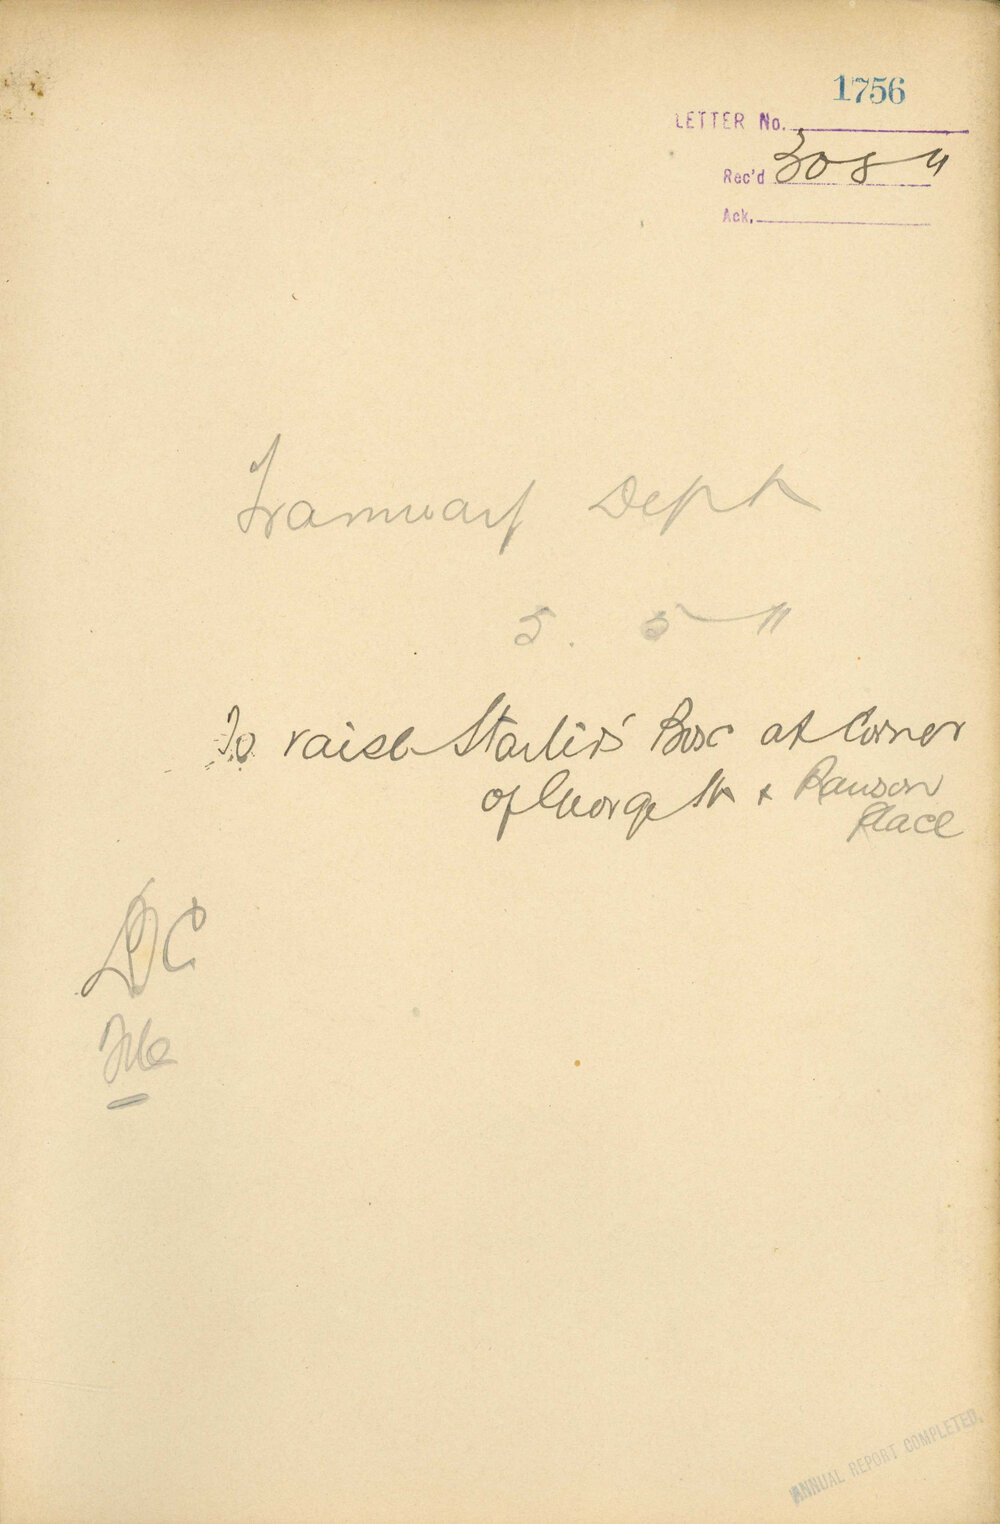 1756
LETTER No.
Rec'd 30 8 11
Ack.
Tramway Dept
5. 5 11
To raise Starter's Box at Corner
of George St & Rawson
Place
File
ANNUAL REPORT COMPLETED.